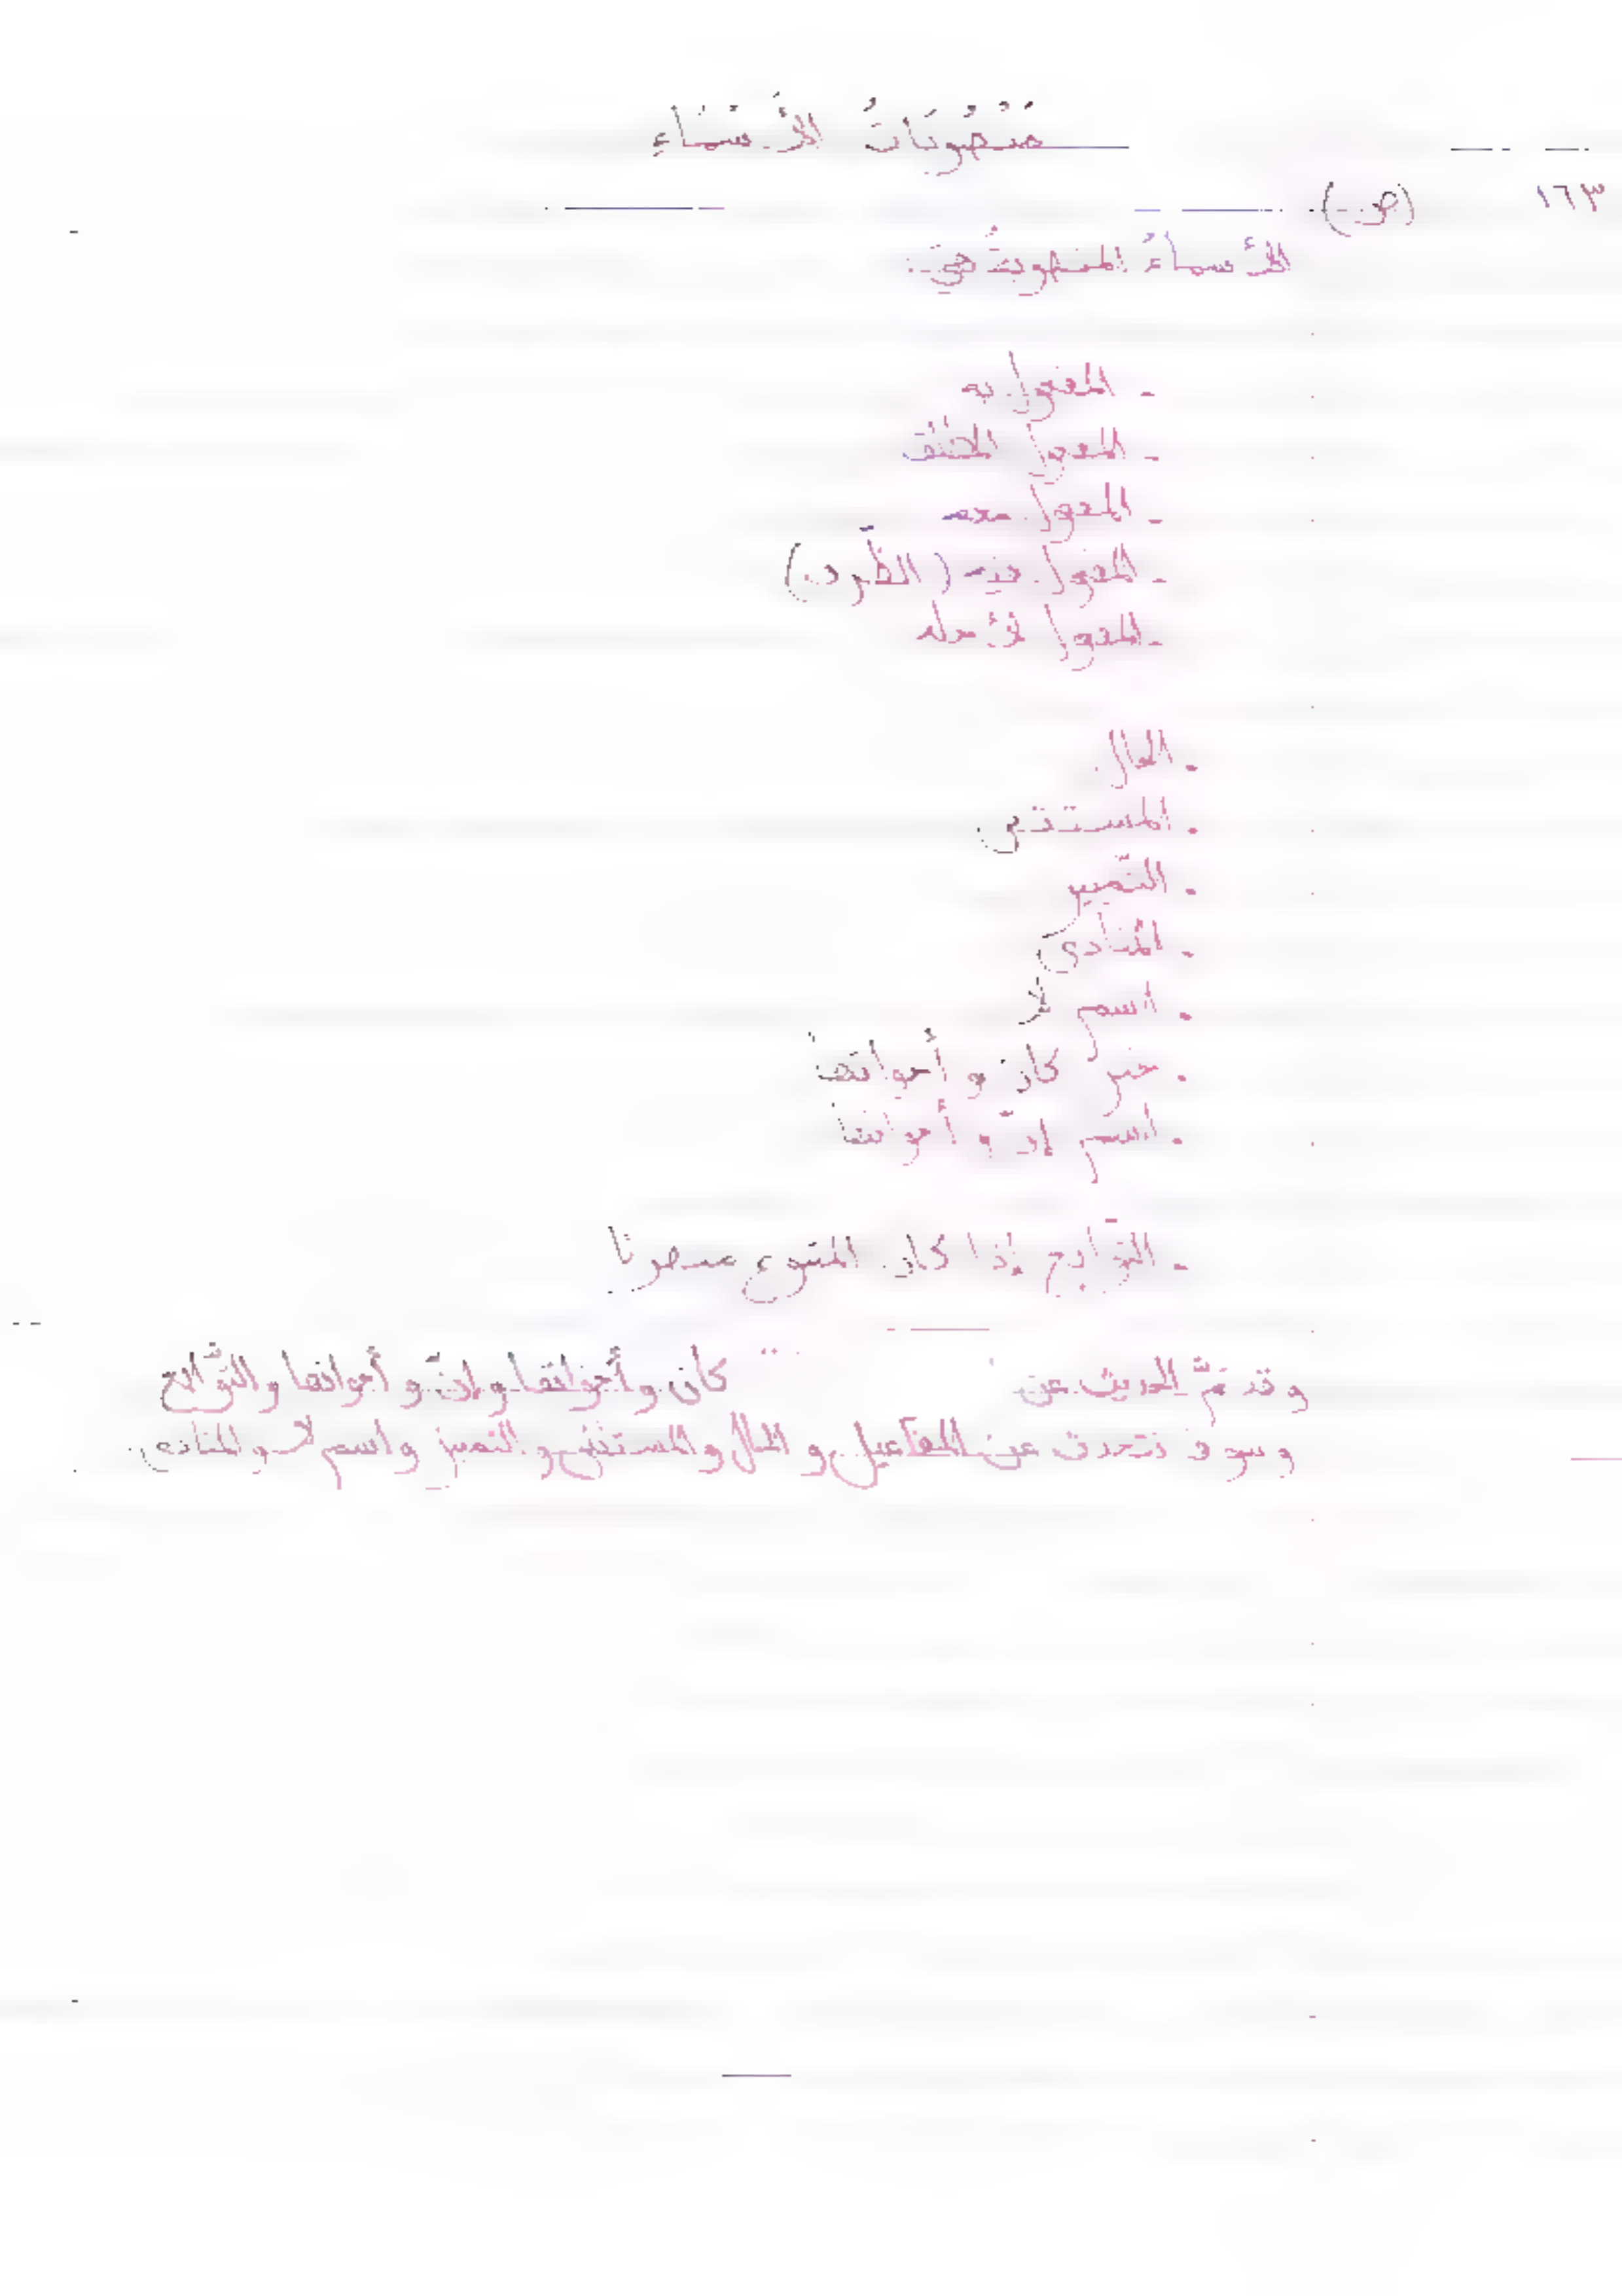 مَنْصُوبَاتُ الأَسْمَاءِ
١٦٣ (ص)
الأسماءُ المنصوبةُ هي:
- المفعول به
- المفعول المطلق
- المفعول معه
- المفعول فيه (الظّرف)
- المفعول لأجله
- الحال
- المستثنى
- التّمييز
- المنادى
- اسم لا
- خبر كان و أخواتها
- اسم إنّ و أخواتها
- التّوابع إذا كان المتبوع منصوبا
و قد تمَّ الحديث عن كان و أخواتها و إنّ و أخواتها و التّوابع
و سوف نتحدث عن المفاعيل و الحال و المستثنى و التمييز و اسم لا و المنادى